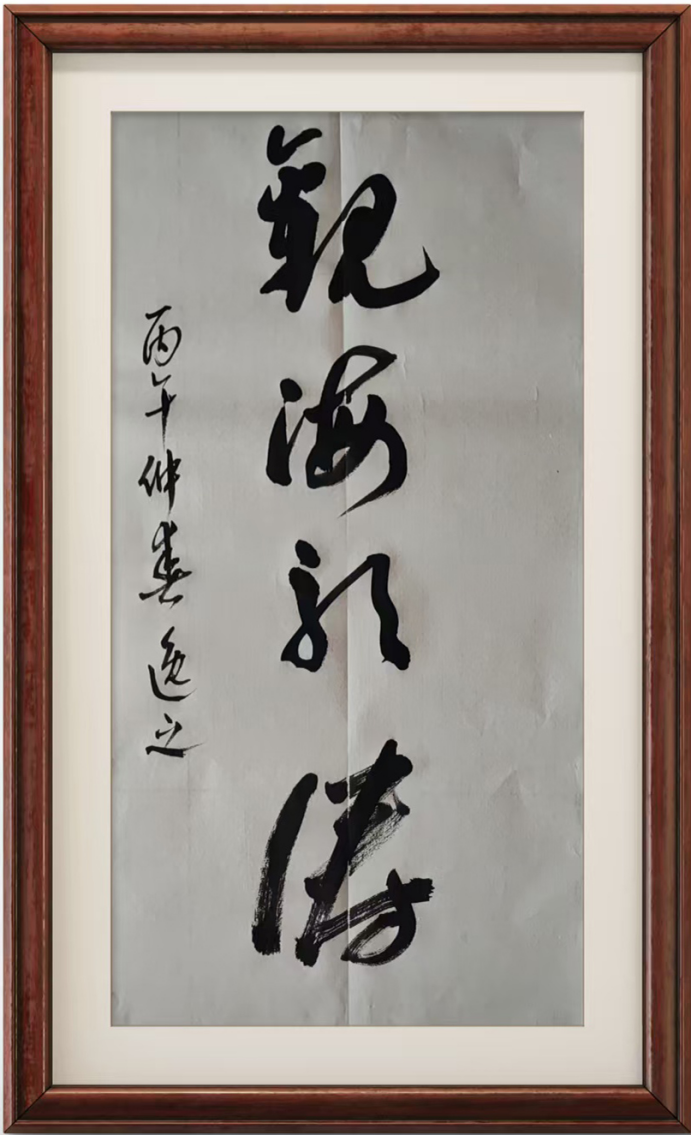 觀海聽濤
丙午仲春逸之